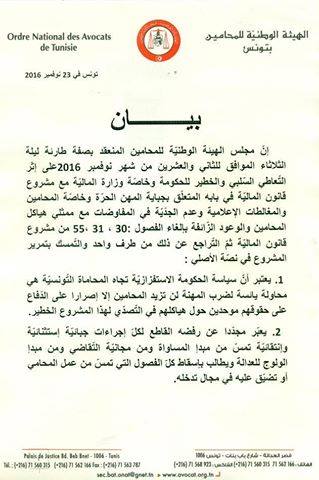 Ordre National des Avocats
de Tunisie
الهيئة الوطنيّة للمحامين
بتونس
تونس في 23 نوفمبر 2016
بيـــــان
إنّ مجلس الهيئة الوطنيّة للمحامين المنعقد بصفة طارئة ليلة
الثلاثاء الموافق للثاني والعشرين من شهر نوفمبر 2016على إثر
التّعاطي السّلبي والخطير للحكومة وخاصّة وزارة الماليّة مع مشروع
قانون الماليّة في بابه المتعلّق بجباية المهن الحرّة وخاصّة المحامين
والمغالطات الإعلامية وعدم الجديّة في المفاوضات مع ممثلي هياكل
المحامين والوعود الزّائفة بإلغاء الفصول :30 ، 31 ،55 من مشروع
قانون الماليّة ثمّ التّراجع عن ذلك من طرف واحد والتّمسك بتمرير
المشروع في نصّه الأصلي :
1. يعتبر أنّ سياسة الحكومة الاستفزازيّة تجاه المحاماة التّونسيّة هي
محاولة يائسة لضرب المهنة لن تزيد المحامين إلا إصرارا على الدّفاع
على حقوقهم موحدين حول هياكلهم في التّصدّي لهذا المشروع الخطير.
2. يعبّر مجدّدا عن رفضه القاطع لكلّ إجراءات جبائيّة إستثنائيّة
وإنتقائيّة تمسّ من مبدإ المساواة ومن مجانيّة التّقاضي ومن مبدإ
الولوج للعدالة ويطالب بإسقاط كلّ الفصول التي تمسّ من عمل المحامي
أو تضيّق عليه في مجال تدخله.
Palais de Justice Bd. Beb Bnet - 1006 - Tunis
قصر العدالة - شارع باب بنات - تونس 1006
Tél. : (+216) 71 560 315 (+216) 71 562 166 Fax : (+216) 71 563 787
sec.bat.onat@gnet.tn www.avocat.org.tn